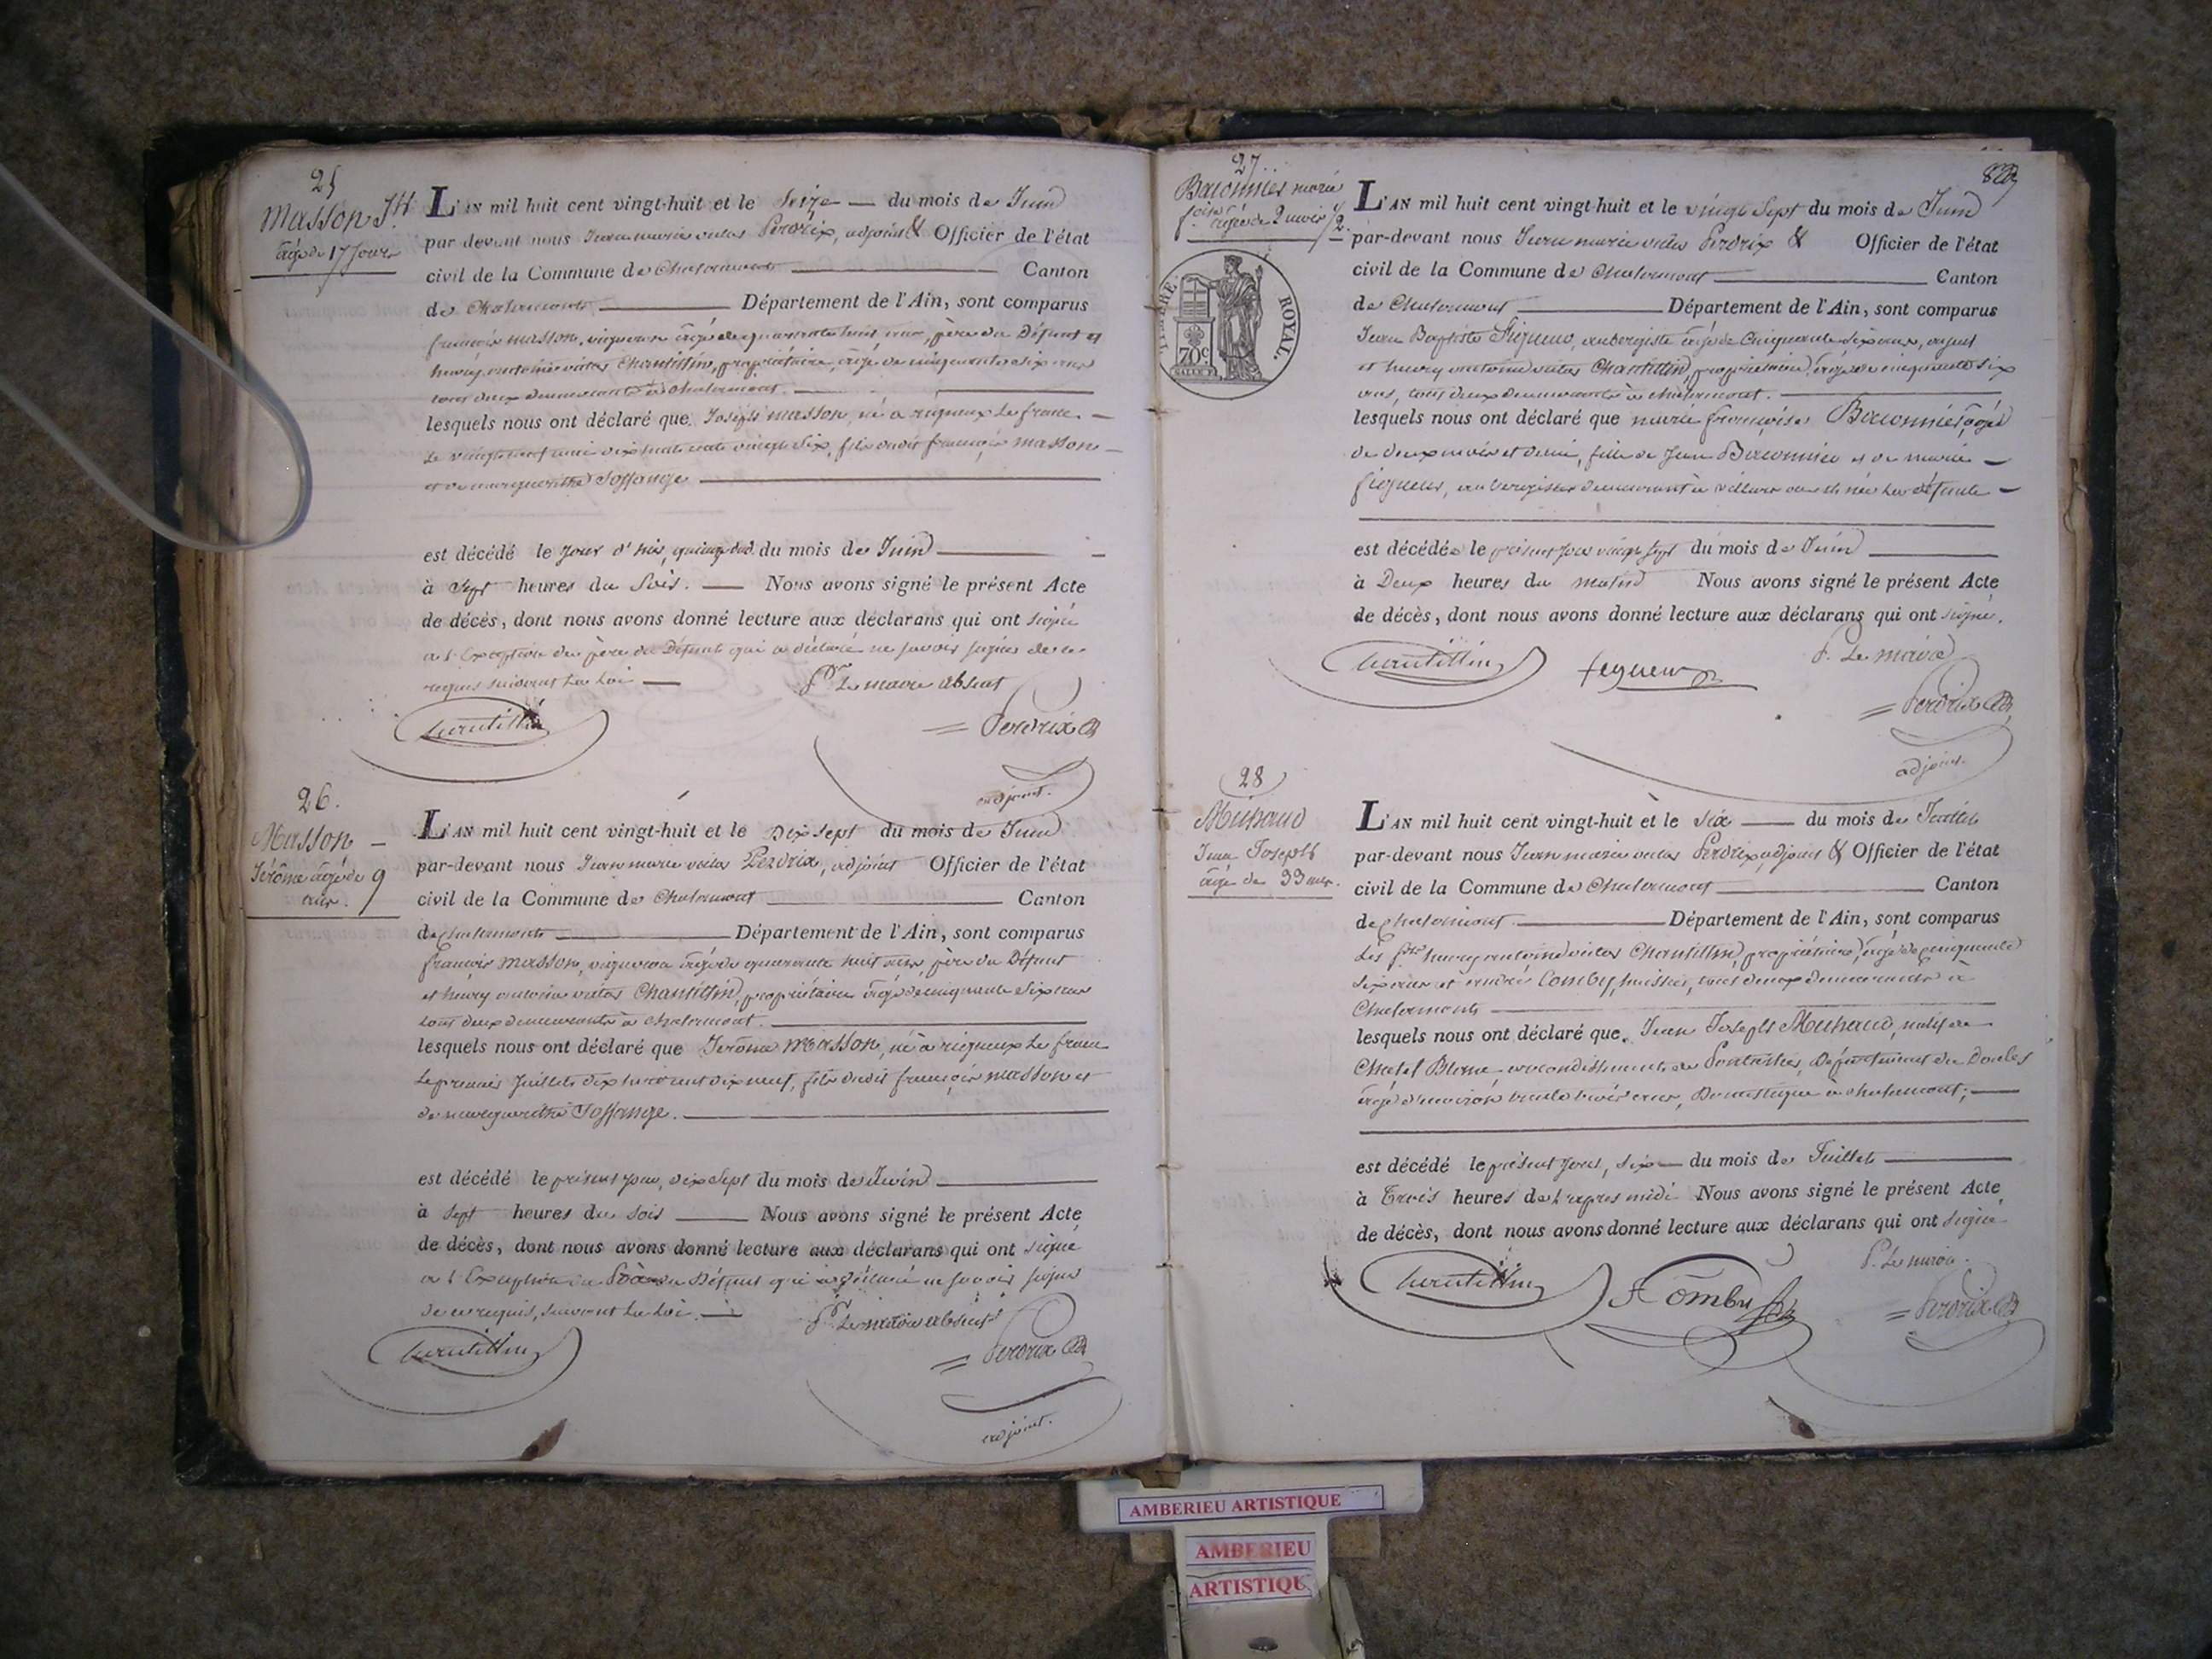 25
Masson Jh.
âgé de 17 Jours
L'AN mil huit cent vingt-huit et le Seize du mois de Juin
par devant nous Jean marie Perdrix, adjoint & Officier de l'état
civil de la Commune de Chalamont Canton
de Chalamont Département de l'Ain, sont comparus
françois masson, vigneron âgé de quarante huit ans, père du Défunt et
henry antoine Chantillin, propriétaire, âgé de cinquante six ans
tous deux demeurants à Chalamont.
lesquels nous ont déclaré que Joseph masson, né à rigneux le franc
le vingt neuf mai dix huit cent vingt, fils dudit françois masson
et de marguerithe Joffange
est décédé le Jour d'hier, quinze du mois de Juin
à Sept heures du Soir. Nous avons signé le présent Acte
de décès, dont nous avons donné lecture aux déclarans qui ont signé
a l'Exception du père du Défunt qui a déclaré ne savoir signer de ce
requis suivant la Loi
Pr. Le maire absent
Chantillin
Perdrix
adjoint.
26.
Masson
Jérôme âgé de 9
ans.
L'AN mil huit cent vingt-huit et le Dix Sept du mois de Juin
par-devant nous Jean marie Perdrix, adjoint Officier de l'état
civil de la Commune de Chalamont Canton
de Chalamont Département de l'Ain, sont comparus
françois masson, vigneron âgé de quarante huit ans, père du Défunt
et henry antoine Chantillin, propriétaire âgé de cinquante six ans
tous deux demeurants à Chalamont.
lesquels nous ont déclaré que Jérôme masson, né à rigneux le franc
le premier Juillet dix huit cent dix neuf, fils dudit françois masson et
de marguerithe Joffange.
est décédé le présent jour, dix Sept du mois de Juin
à Sept heures du Soir Nous avons signé le présent Acte
de décès, dont nous avons donné lecture aux déclarans qui ont signé
a l'Exception du Père du Défunt qui a déclaré ne savoir signer
de ce requis, suivant la Loi.
Pr. Le maire absent
Chantillin
Perdrix
adjoint.
27
Baconnier marie
foise âgée de 2 mois 1/2.
TIMBRE ROYAL.
70c.
L'AN mil huit cent vingt-huit et le vingt Sept du mois de Juin
par-devant nous Jean marie Perdrix & Officier de l'état
civil de la Commune de Chalamont Canton
de Chalamont Département de l'Ain, sont comparus
Jean Baptiste aubergiste âgé de Cinquante
et henry antoine Chantillin, propriétaire, âgé de cinquante six
ans, tous deux demeurants à chalamont.
lesquels nous ont déclaré que marie françoise Baconnier, âgée
de deux mois et demi, fille de Jean Baconnier et de marie
demeurant à villars où est née la défunte
est décédée le présent jour vingt sept du mois de Juin
à Deux heures du matin Nous avons signé le présent Acte
de décès, dont nous avons donné lecture aux déclarans qui ont signé.
P. Le maire
Chantillin
Perdrix
adjoint.
28
Jean Joseph
âgé de 33 ans.
L'AN mil huit cent vingt-huit et le Six du mois de Juillet
par-devant nous Jean marie Perdrix adjoint & Officier de l'état
civil de la Commune de Chalamont Canton
de Chalamont Département de l'Ain, sont comparus
Les henry antoine Chantillin, propriétaire, âgé de cinquante
six ans et andré Comby, huissier, tous deux demeurants à
Chalamont
lesquels nous ont déclaré que Jean Joseph natif de
Chatel Blanc arrondissement de Pontarlier, Département du Doubs
âgé d'environ trente trois ans, Domestique à chalamont,
est décédé le présent jour, six du mois de Juillet
à Trois heures de l'apres midi Nous avons signé le présent Acte
de décès, dont nous avons donné lecture aux déclarans qui ont signé
P. Le maire.
Chantillin
Comby
Perdrix
AMBERIEU ARTISTIQUE
AMBERIEU
ARTISTIQU